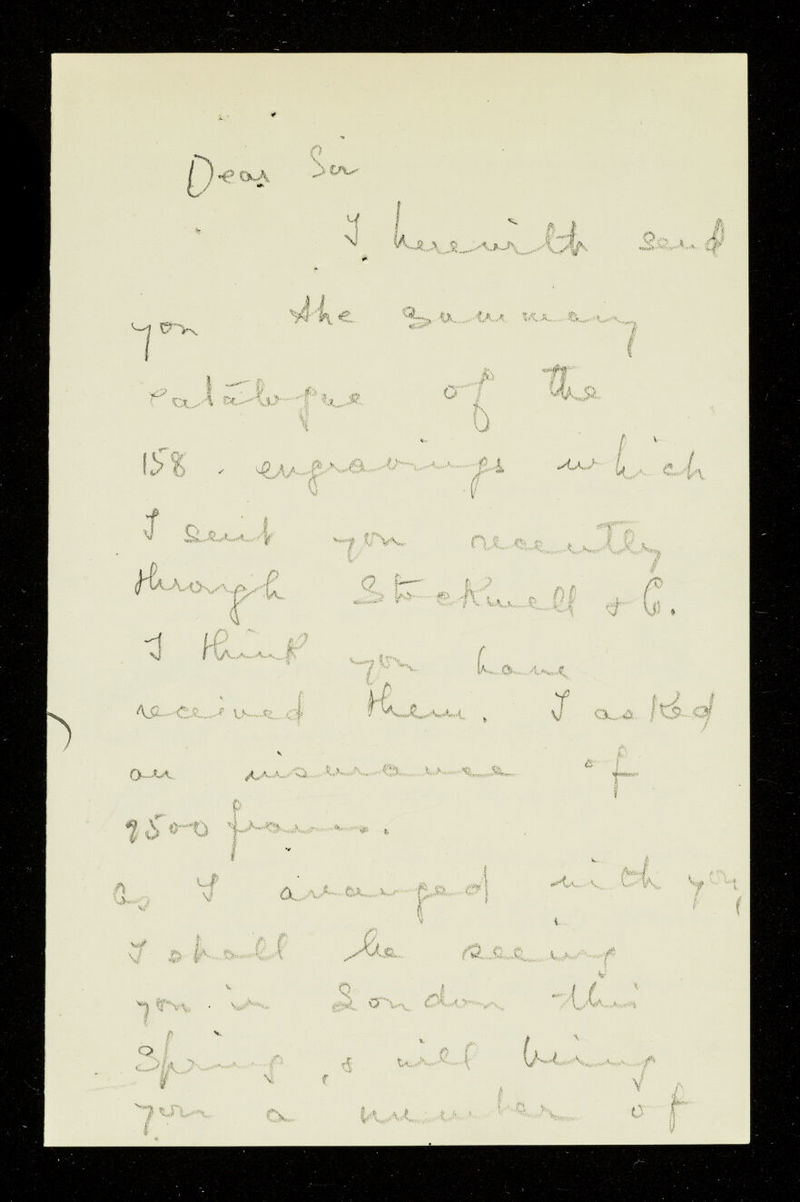 Dear Sir
I herewith send
you the summary
catalogue of the
158 . engravings which
I sent you recently
through Stockwell & Co.
I think you have
received them. I asked
an insurance of
9500 francs.
As I arranged with you,
I shall be seeing
you in London this
Spring, & will bring
you a number of